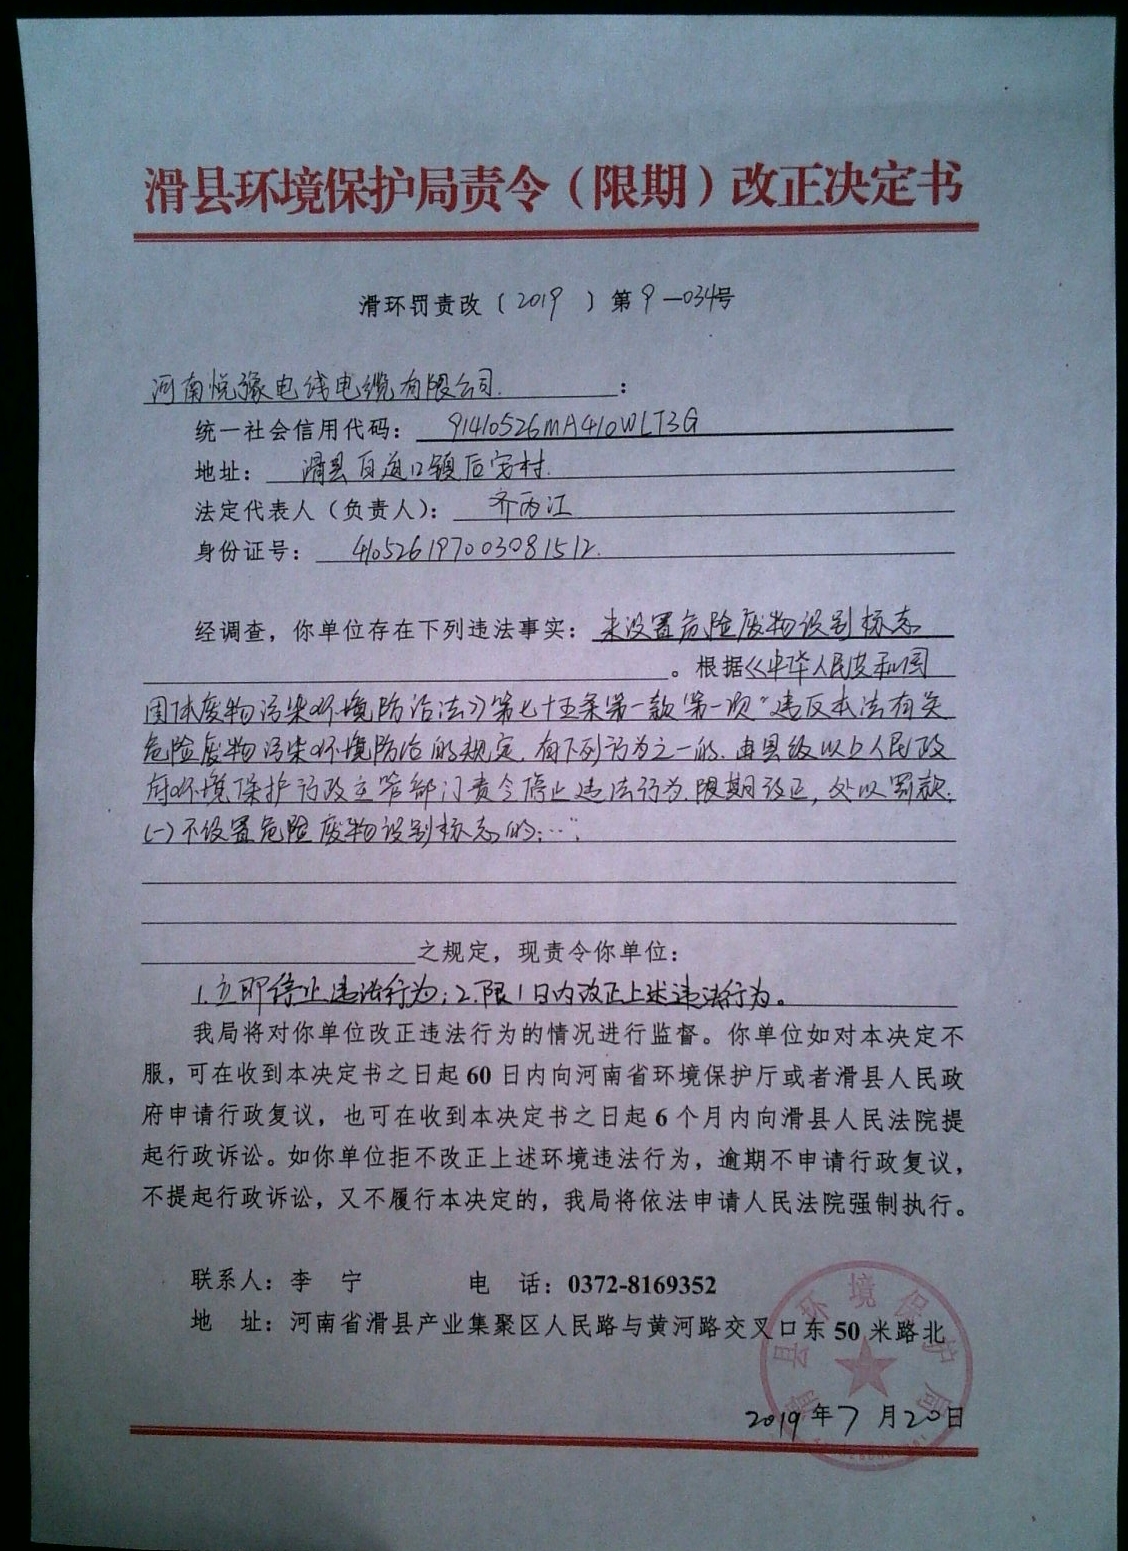 滑县环境保护局责令（限期）改正决定书
滑环罚责改〔2019 〕第9-034号
河南悦豫电线电缆有限公司.：
统一社会信用代码：91410526MA410WLT3G
地址：滑县白道口镇后安村.
法定代表人（负责人）：齐丙江
身份证号：410526197003081512.
经调查，你单位存在下列违法事实：未设置危险废物识别标志
。根据《中华人民共和国
固体废物污染环境防治法》第七十五条第一款第一项“违反本法有关
危险废物污染环境防治的规定，有下列行为之一的，由县级以上人民政
府环境保护行政主管部门责令停止违法行为，限期改正，处以罚款：
(一)不设置危险废物识别标志的；…”
之规定，现责令你单位：
1.立即停止违法行为；2.限1日内改正上述违法行为。
我局将对你单位改正违法行为的情况进行监督。你单位如对本决定不
服，可在收到本决定书之日起60日内向河南省环境保护厅或者滑县人民政
府申请行政复议，也可在收到本决定书之日起6个月内向滑县人民法院提
起行政诉讼。如你单位拒不改正上述环境违法行为，逾期不申请行政复议，
不提起行政诉讼，又不履行本决定的，我局将依法申请人民法院强制执行。
联系人：李　宁　　电　话：0372-8169352
地　址：河南省滑县产业集聚区人民路与黄河路交叉口东50米路北
滑县环境保护局
2019年7月20日